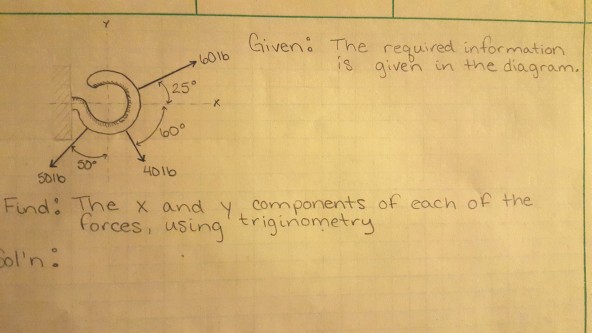 Y
60lb
Given: The required information
is given in the diagram.
25°
X
60°
50°
40lb
50lb
Find: The x and y components of each of the
forces, using triginometry
Sol'n: